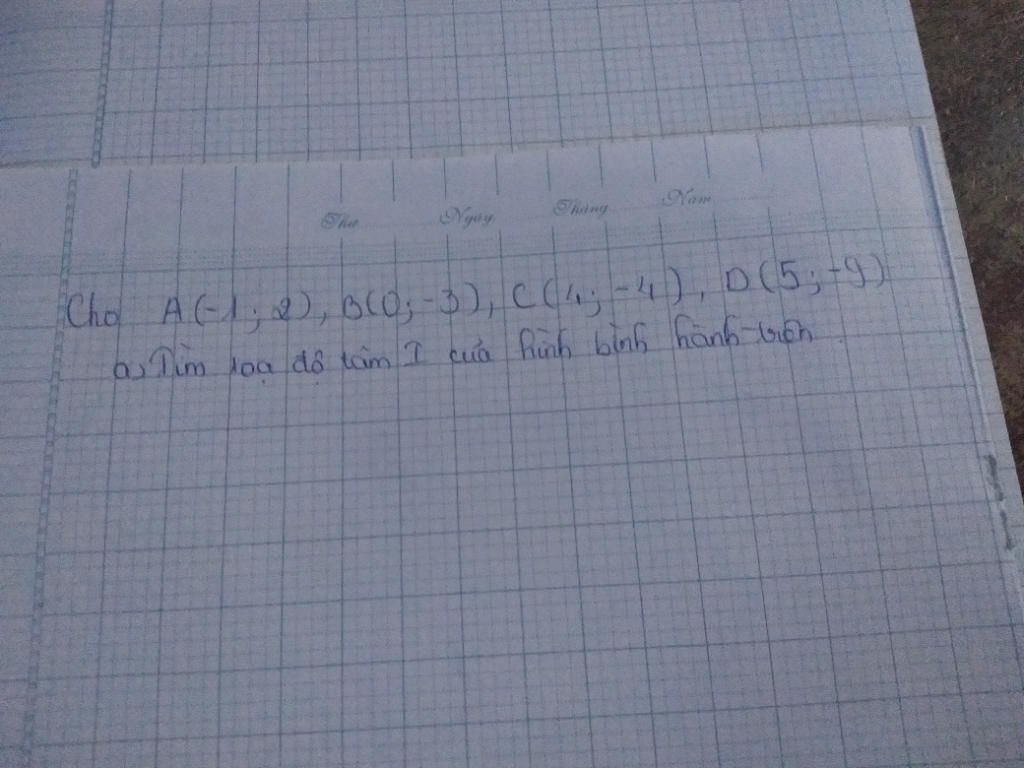 Thứ Ngày Tháng Năm
Cho A(-1; 2), B(0; -3), C(4; -4), D(5; -9)
a, Tìm toạ độ tâm I của hình bình hành trên